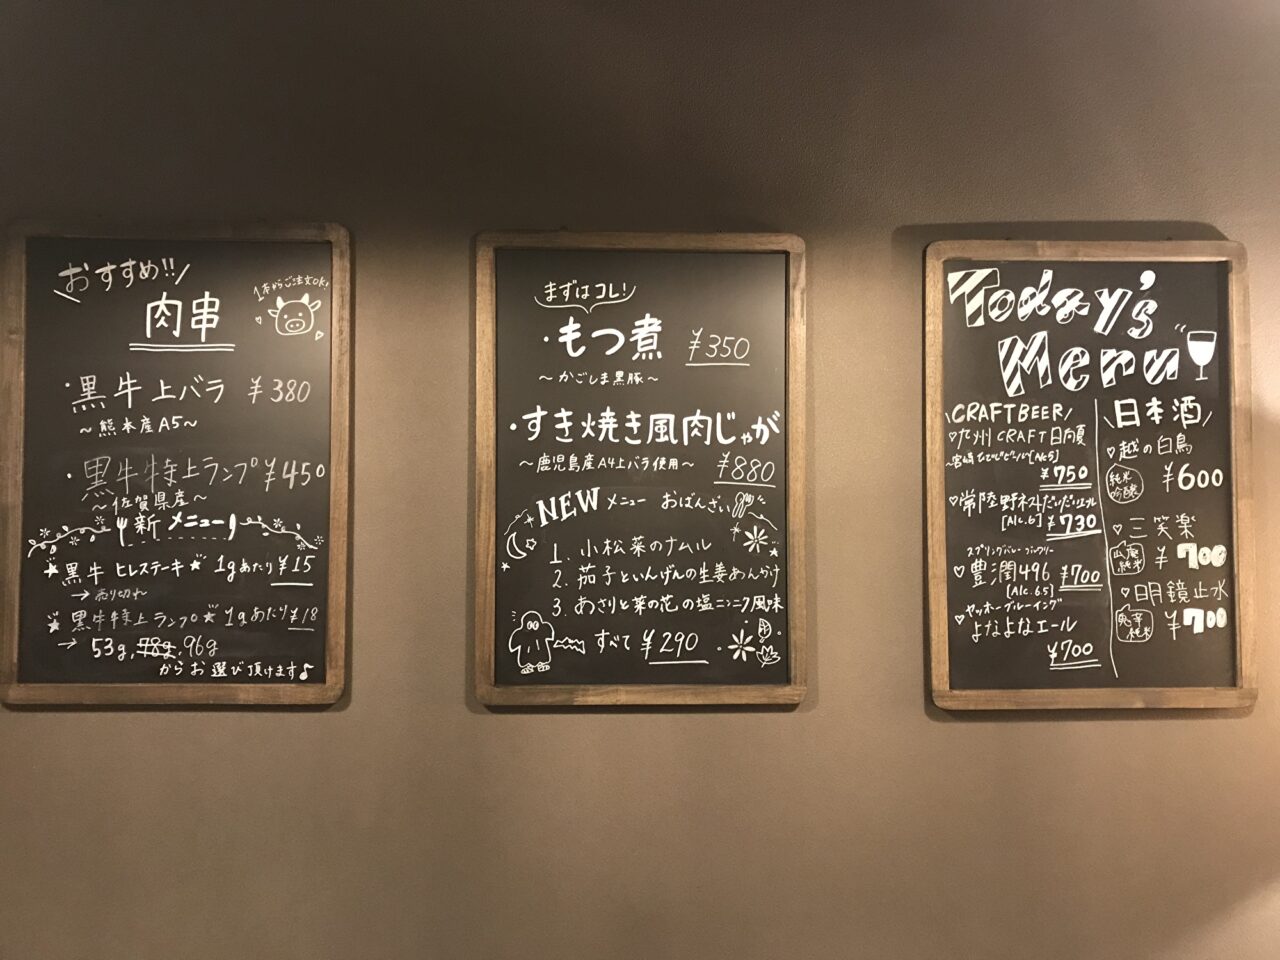 おすすめ!!
1本からご注文OK!
肉串
・黒牛上バラ ¥380
～熊本産A5～
・黒牛特上ランプ ¥450
～佐賀県産～
新メニュー
★黒牛 ヒレステーキ★ 1gあたり ¥15
→ 売り切れ
★黒牛特上ランプ★ 1gあたり ¥18
→ 53g, 78g, 96g
からお選び頂けます♪
まずはコレ!
・もつ煮 ¥350
～かごしま黒豚～
・すき焼き風肉じゃが
～鹿児島産A4上バラ使用～ ¥880
NEWメニュー おばんざい
1. 小松菜のナムル
2. 茄子といんげんの生姜あんかけ
3. あさりと菜の花の塩ニンニク風味
すべて ¥290
Today's
Menu
\CRAFTBEER/
♡九州CRAFT日向夏
¥750
♡常陸野ネスト
[Alc.6] ¥730
スプリングバレーブルワリー
♡豊潤496 ¥700
[Alc.6.5]
♡ヤッホーブルーイング
よなよなエール
¥700
\日本酒/
♡越の白鳥
純米吟醸 ¥600
♡三笑楽
山廃純米 ¥700
♡明鏡止水
純米 ¥700